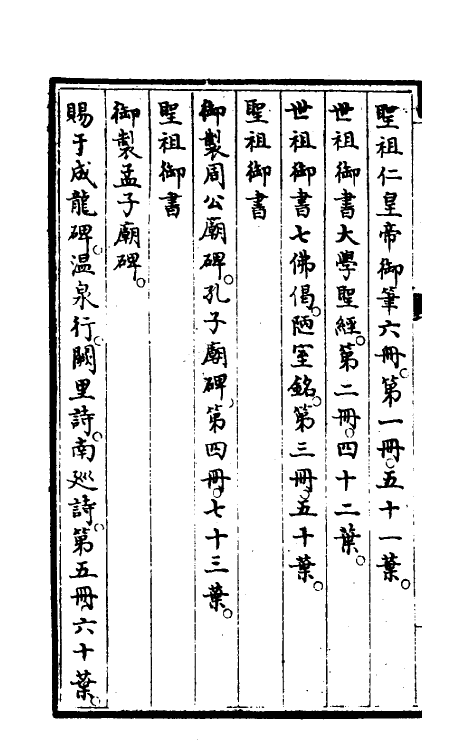 聖祖仁皇帝御筆六冊。第一冊。五十一葉。
世祖御書大學聖經。第二冊。四十二葉。
世祖御書七佛偈。陋室銘。第三冊。五十葉。
聖祖御書
御製周公廟碑。孔子廟碑、第四冊。七十三葉。
聖祖御書
御製孟子廟碑。
賜于成龍碑。温泉行。闕里詩。南廵詩。第五冊。六十葉。